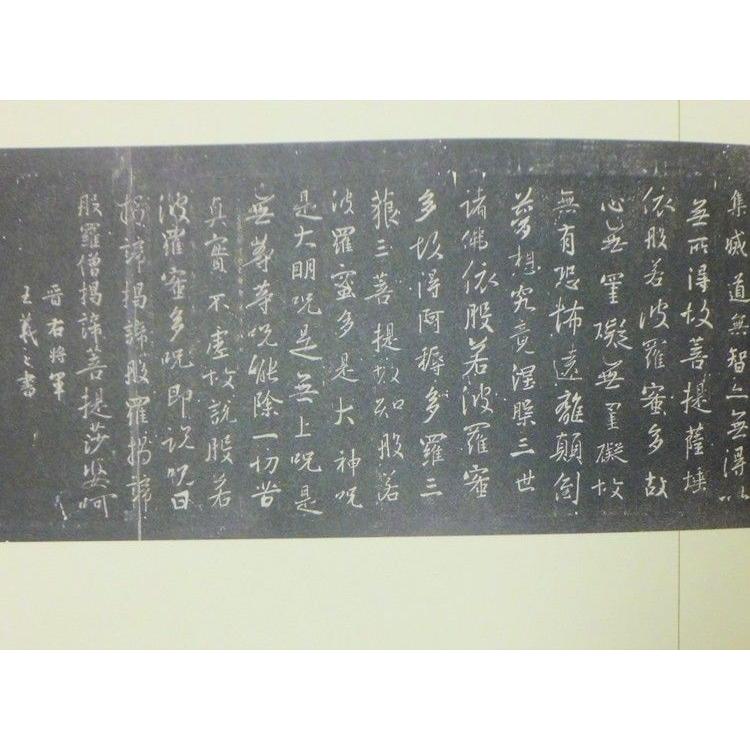 集滅道無智亦無得以
無所得故菩提薩埵
依般若波羅蜜多故
心無罣礙無罣礙故
無有恐怖遠離顛倒
夢想究竟涅槃三世
諸佛依般若波羅蜜
多故得阿耨多羅三
藐三菩提故知般若
波羅蜜多是大神咒
是大明咒是無上咒是
無等等咒能除一切苦
真實不虛故說般若
波羅蜜多咒即說咒曰
揭諦揭諦般羅揭諦
般羅僧揭諦菩提莎婆呵
晉右將軍
王羲之書